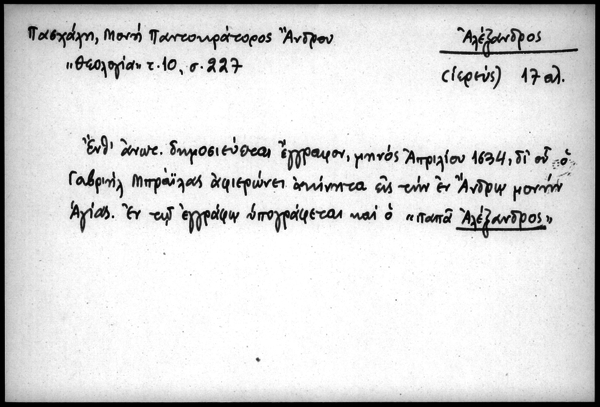 Πασχάλη, Μονή Παντοκράτορος Ἄνδρου
«Θεολογία» τ. 10, σ. 227
Ἀλέξανδρος
(ἱερεύς) 17 αἰ.
Ἔνθ' ἀνωτ. δημοσιεύεται ἔγγραφον, μηνός Ἀπριλίου 1634, δι' οὗ ὁ
Γαβριήλ Μπράϊλας ἀφιερώνει ἀκίνητα εἰς τήν ἐν Ἄνδρῳ μονήν
Ἁγίας. Ἐν τῷ ἐγγράφῳ ὑπογράφεται καί ὁ «παπᾶ Ἀλέξανδρος»